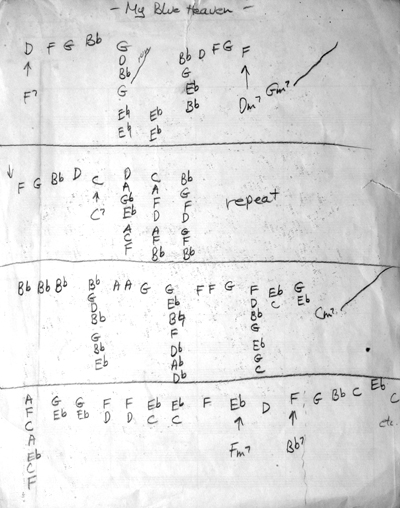 - My Blue Heaven -
D F G Bb G Bb D F G F
D G
Bb Eb
F7 G Bb Dm7 Gm7
Eb Eb
Eb Eb
F G Bb D C D C Bb
A A G
C7 Gb F F repeat
Eb D D
A A G
C F F
F Bb Bb
Bb Bb Bb Bb A A G G F F G F Eb G
G Eb D C Eb
D Bb Bb Cm7
Bb F G
G Db Eb
Bb Ab G
Eb Db C
A G G F F Eb Eb F Eb D F G Bb C Eb C
F Eb Eb D D C C
C etc.
A Fm7 Bb7
Eb
C
F